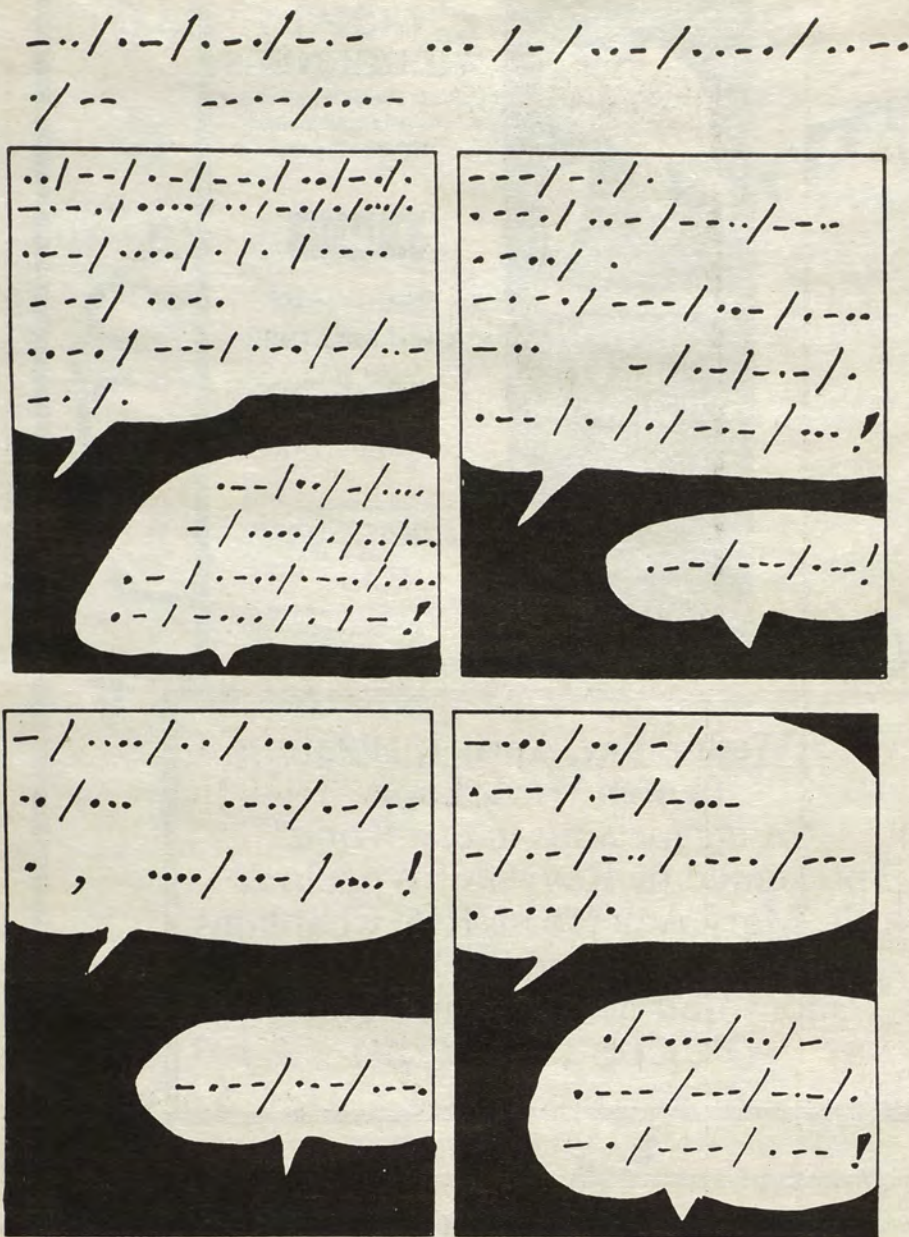 -../.-/.-./-.- .../-/..-/..-./..-.
./-- --.-/...-
../--/.-/--./../-./.
-.-./..../../-././.../.
.--/...././././.-..
---/..-.
..-./---/.-./-/..-
-./.
.--/../-/....
-/...././../.-.
.-/.-../.--./....
.-/-..././-!
---/-./.
.--./..-/--../--..
.-../.
-.-./---/..-/.-..
-.. -/.-/-.-/.
.--/././-.-/...!
.--/---/.--!
-/..../../...
../... .-../.-/--
., ..../..-/....!
-.--/..-/.--.
-.../../-/.
.--/.-/-..
-/.-/-../.--./---
.-../.
./-..-/../-
.---/---/-.-/.
-./---/.--!